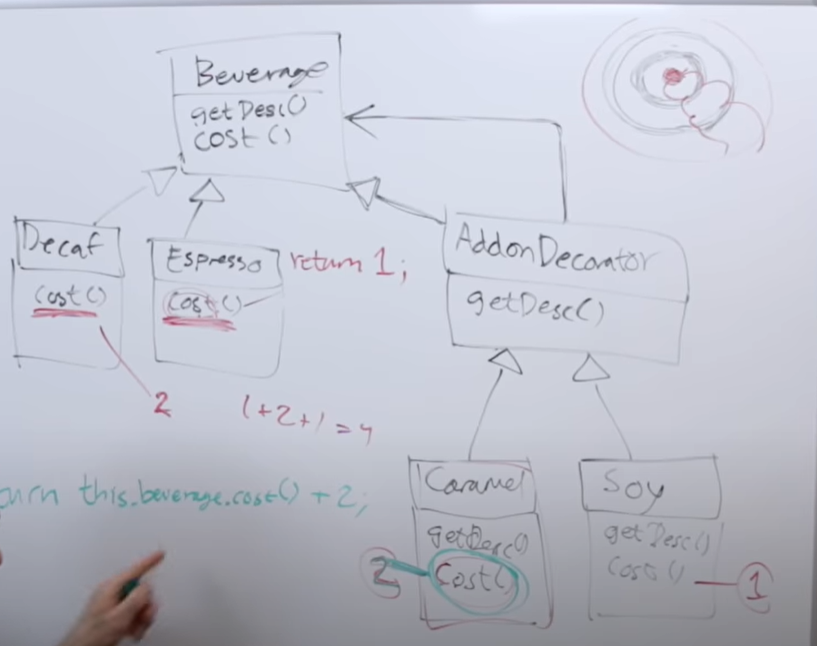 Beverage
getDesc()
cost()
Decaf
cost()
2
Espresso
cost()
return 1;
AddonDecorator
getDesc()
1+2+1=4
this.beverage.cost() + 2;
Caramel
getDesc()
cost()
2
Soy
getDesc()
cost()
1